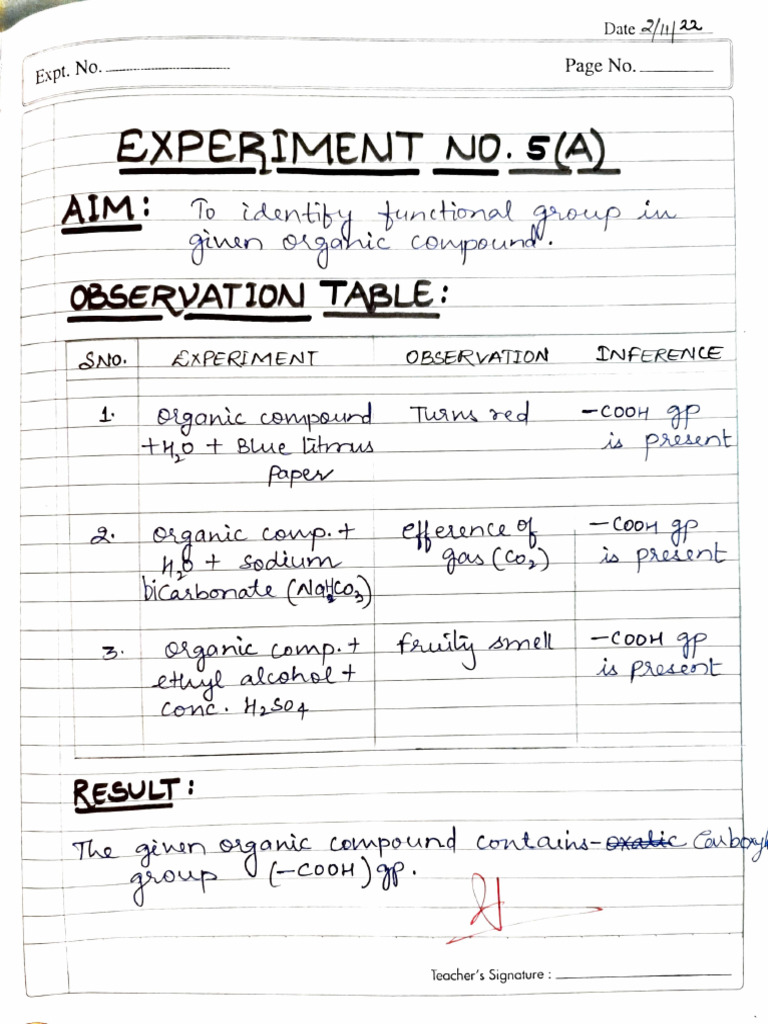 Date 2/11/22
Expt. No.
Page No.
EXPERIMENT NO. 5(A)
AIM: To identify functional group in
given organic compound.
OBSERVATION TABLE:
SNO. EXPERIMENT OBSERVATION INFERENCE
1. Organic compound Turns red -COOH gp
+H2O + Blue litmus is present
paper
2. Organic comp. + efference of -COOH gp
H2O + sodium gas (CO2) is present
bicarbonate (NaHCO3)
3. Organic comp. + fruity smell -COOH gp
ethyl alcohol + is present
conc. H2SO4
RESULT:
The given organic compound contains - oxalic Carboxyl
group (-COOH) gp.
Teacher's Signature :